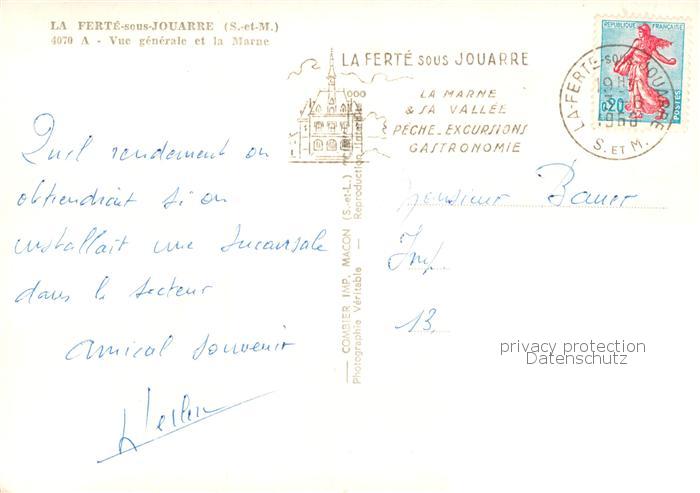 LA FERTÉ-sous-JOUARRE (S.-et-M.)
4070 A - Vue générale et la Marne
Quel rendement on
obtiendrait si on
installait une succursale
dans le secteur
amical souvenir
COMBIER IMP. MACON (S.-et-L.)
Photographie Véritable — Reproduction Interdite
LA FERTÉ SOUS JOUARRE
LA MARNE
& SA VALLÉE
PÊCHE_EXCURSIONS
GASTRONOMIE
REPUBLIQUE FRANÇAISE
0,20
POSTES
LA-FERTE-SOUS-JOUARRE
19H
S. ET M.
Monsieur Bauer
Imp
13.
privacy protection
Datenschutz